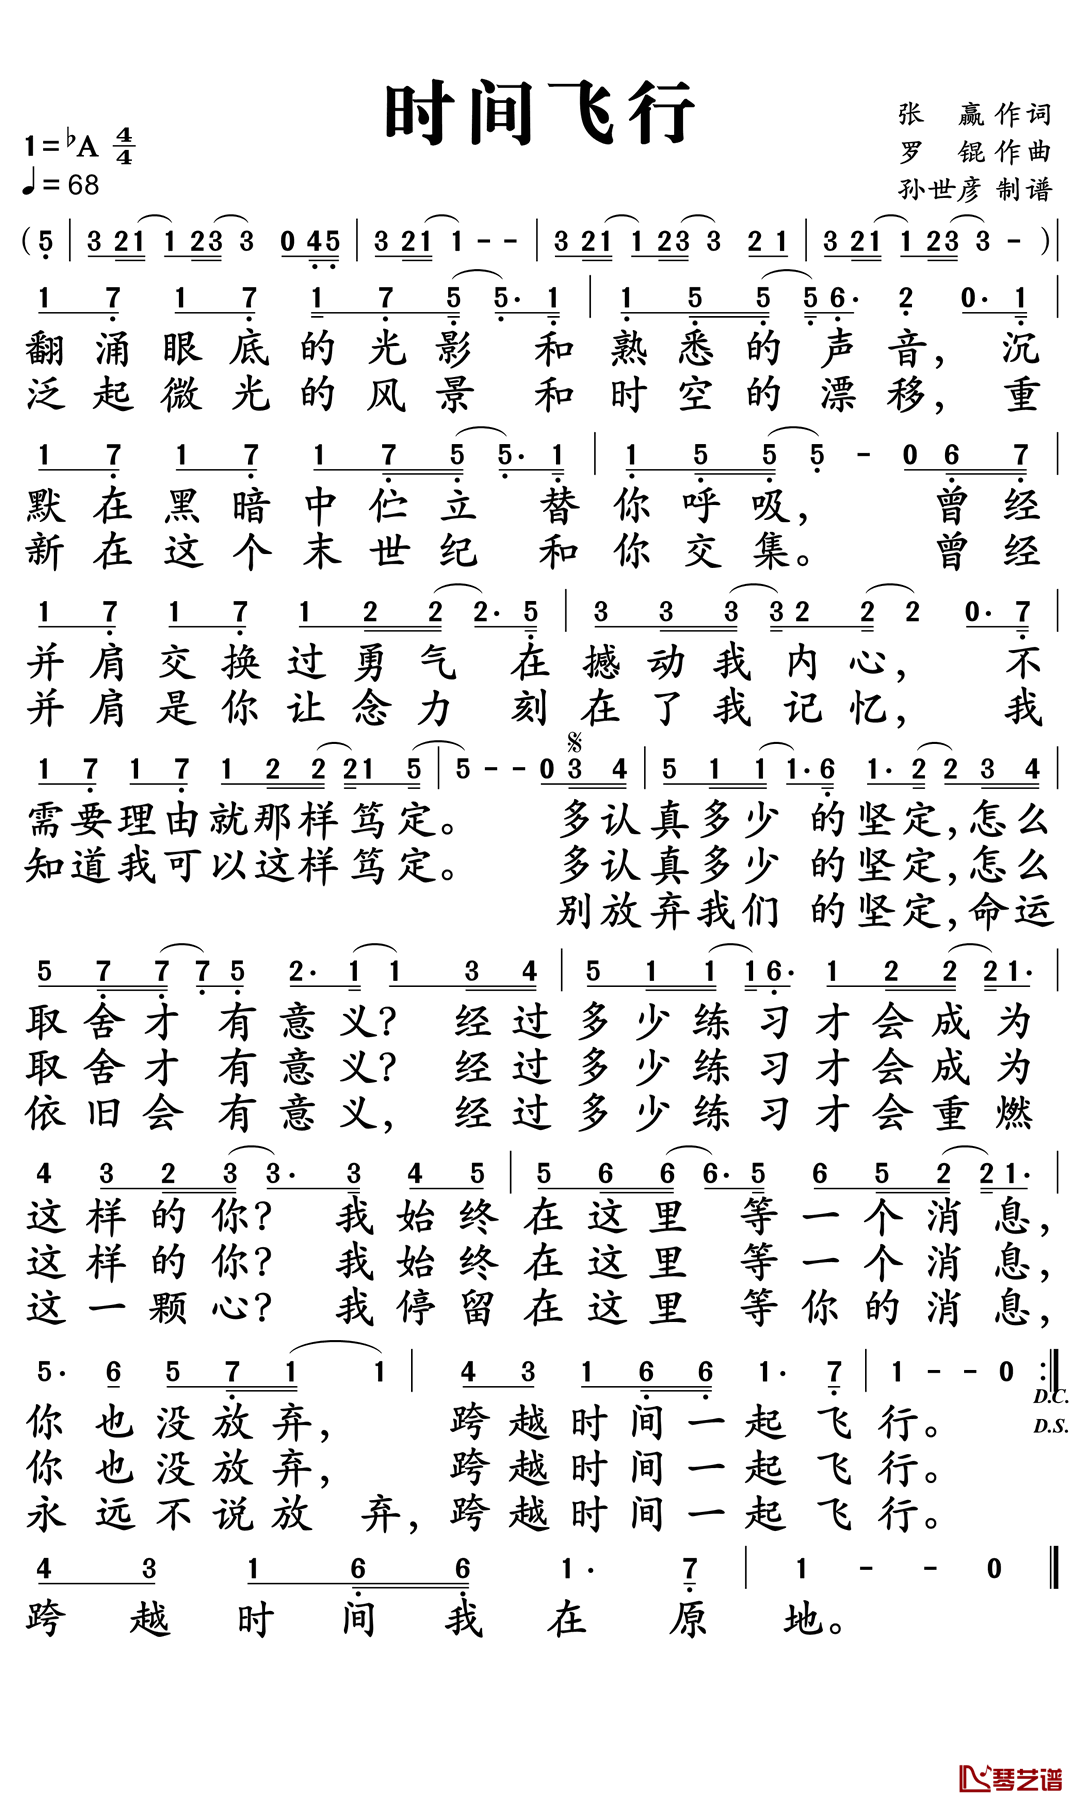 时间飞行
张 赢 作词
罗 锟 作曲
孙世彦 制谱
1=♭A 4/4
♩=68
( 5 | 3 21 1 23 3 0 45 | 3 21 1 - - | 3 21 1 23 3 2 1 | 3 21 1 23 3 - ) |
1 7 1 7 1 7 5 5· 1 | 1 5 5 5 6· 2 0· 1 |
翻涌眼底的光影 和熟悉的声音，沉
泛起微光的风景 和时空的漂移，重
1 7 1 7 1 7 5 5· 1 | 1 5 5 5 - 0 6 7 |
默在黑暗中伫立 替你呼吸， 曾经
新在这个末世纪 和你交集。 曾经
1 7 1 7 1 2 2 2· 5 | 3 3 3 3 2 2 2 0· 7 |
并肩交换过勇气 在撼动我内心， 不
并肩是你让念力 刻在了我记忆， 我
1 7 1 7 1 2 2 21 5 | 5 - - 0 3 4 | 5 1 1 1· 6 1· 2 2 3 4 |
需要理由就那样笃定。 多认真多少 的坚定，怎么
知道我可以这样笃定。 多认真多少 的坚定，怎么
别放弃我们 的坚定，命运
5 7 7 7 5 2· 1 1 3 4 | 5 1 1 1 6· 1 2 2 2 1· |
取舍才 有意义？ 经过多少练习才会成为
取舍才 有意义？ 经过多少练习才会成为
依旧会 有意义， 经过多少练习才会重燃
4 3 2 3 3· 3 4 5 | 5 6 6 6· 5 6 5 2 2 1· |
这样的你？ 我始终在这里 等一个消息，
这样的你？ 我始终在这里 等一个消息，
这一颗心？ 我停留在这里 等你的消息，
5· 6 5 7 1 1 | 4 3 1 6 6 1· 7 | 1 - - 0 :||
D.C.
D.S.
你也没放弃， 跨越时间一起飞行。
你也没放弃， 跨越时间一起飞行。
永远不说放 弃，跨越时间一起飞行。
4 3 1 6 6 1· 7 | 1 - - 0 ||
跨越时间我在原地。
琴艺谱